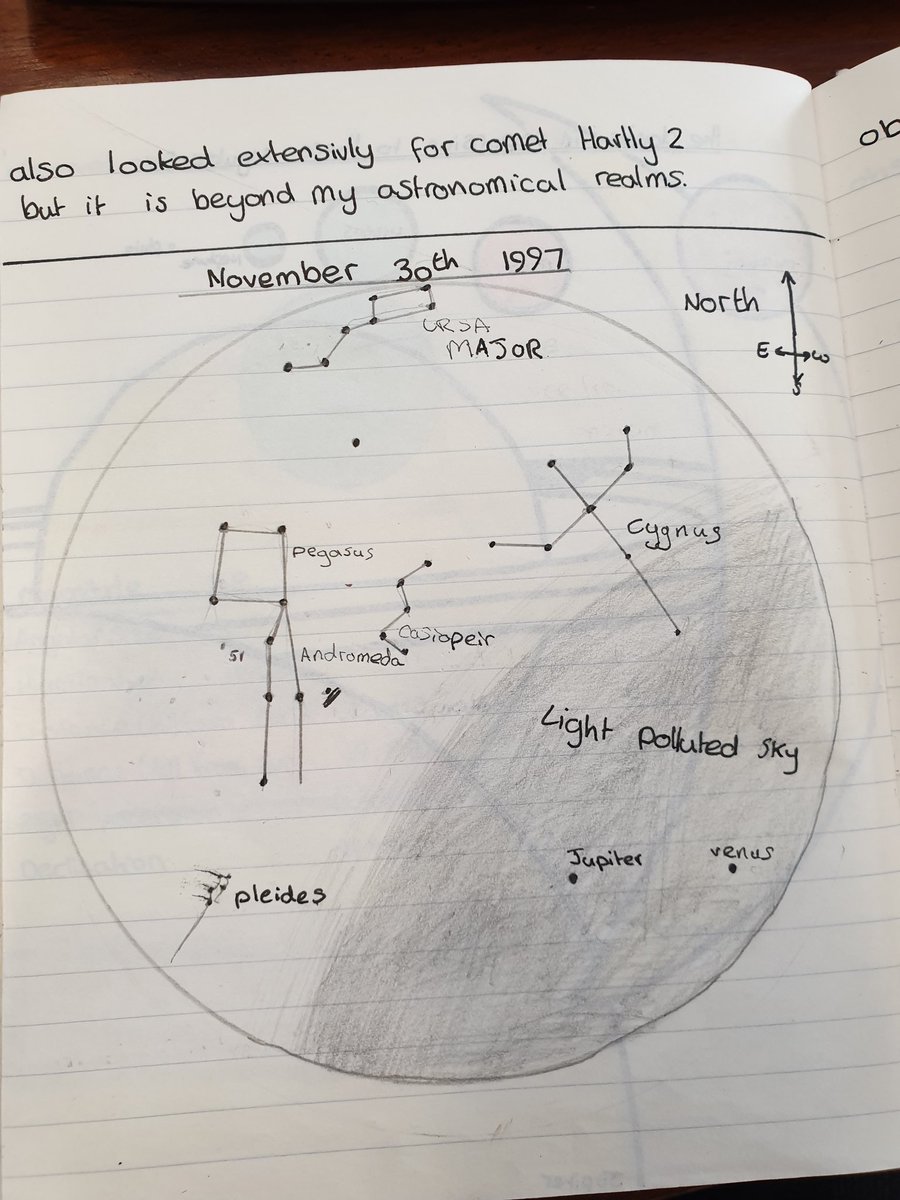 also looked extensivly for comet Hartly 2
but it is beyond my astronomical realms.
ob
November 30th 1997
North
E W
S
URSA
MAJOR
Cygnus
Pegasus
Casiopeir
'51
Andromeda
Light Polluted Sky
Jupiter
venus
pleides